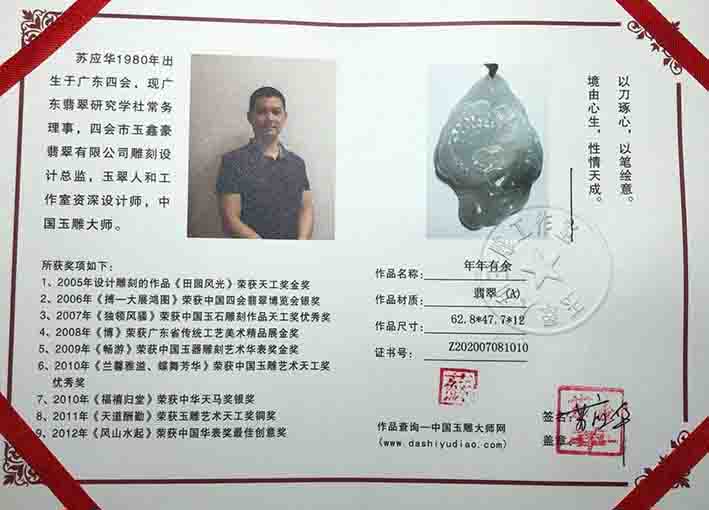 苏应华1980年出
生于广东四会，现广
东翡翠研究学社常务
理事，四会市玉鑫豪
翡翠有限公司雕刻设
计总监，玉翠人和工
作室资深设计师，中
国玉雕大师。
以刀琢心，以笔绘意。
境由心生，性情天成。
所获奖项如下：
1、2005年设计雕刻的作品《田园风光》荣获天工奖金奖
2、2006年《搏一大展鸿图》荣获中国四会翡翠博览会银奖
3、2007年《独领风骚》荣获中国玉石雕刻作品天工奖优秀奖
4、2008年《博》荣获广东省传统工艺美术精品展金奖
5、2009年《畅游》荣获中国玉器雕刻艺术华表奖金奖
6、2010年《兰馨雅溢、蝶舞芳华》荣获中国玉雕艺术天工奖
优秀奖
7、2010年《福禧归堂》荣获中华天马奖银奖
8、2011年《天道酬勤》荣获玉雕艺术天工奖铜奖
9、2012年《风山水起》荣获中国华表奖最佳创意奖
作品名称： 年年有余
作品材质： 翡翠（A）
作品尺寸： 62.8*47.7*12
证书号： Z202007081010
作品查询—中国玉雕大师网
(www.dashiyudiao.com)
签名：
盖章：